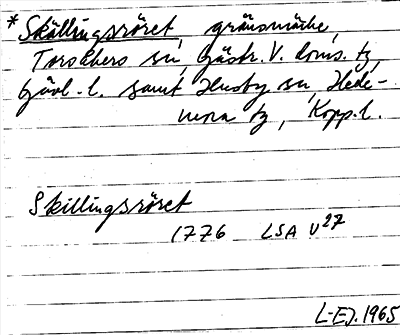 * Skällingsröret, gränsmärke,
Torsåkers sn, Gästr. V. doms. tg,
Gävl. l. samt Husby sn, Hede-
mora tg, Kopp. l.
Skillingsröret
1776 LSA U27
L-E.J. 1965